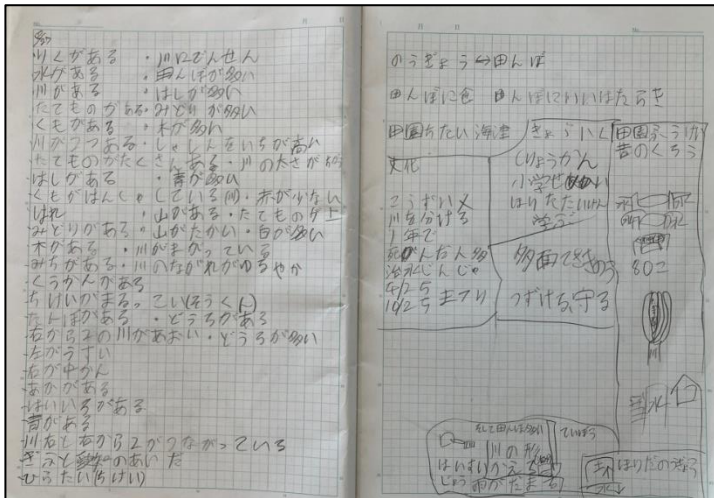 りくがある ・川にでんせん
水がある ・田んぼが多い
川がある ・はしが多い
たてものがある・みどりが多い
くもがある ・木が多い
川が2つある・しゃしんをいちが高い
たてものがたくさんある・川の太さが
はしがある ・青が多い
くもがはんしゃしている(川)・赤が少ない
はれ ・山がある・たてもの
みどりがある・山がたかい・白が多い
木がある ・川がまがっている
みちがある・川のながれがゆるやか
くうかんがある
ちけいがまるってい(そうくん)
たんぼがある ・どうろがある
右から2の川があおい・どうろが多い
左がうすい
右が中かん
あかがある
はいいろがある
青がある
川右と右から2がつながっている
ぎふと のあいだ
ひらたい(ちけい)
のうぎょう⇔田んぼ
田んぼに食 田んぼにいいはたらき
田園ちたい 海津
文化
こうずい
川を分ける
1年で
治水じんじゃ
4/25
10/25 まつり
きょういく
しりょうかん
小学
学ぶ
多面てき きのう
つづける、守る
昔のくろう
80こ
川
水
そして田んぼ多い
川の形
はいすい
じょう
ていぼう
ほりたのくろう